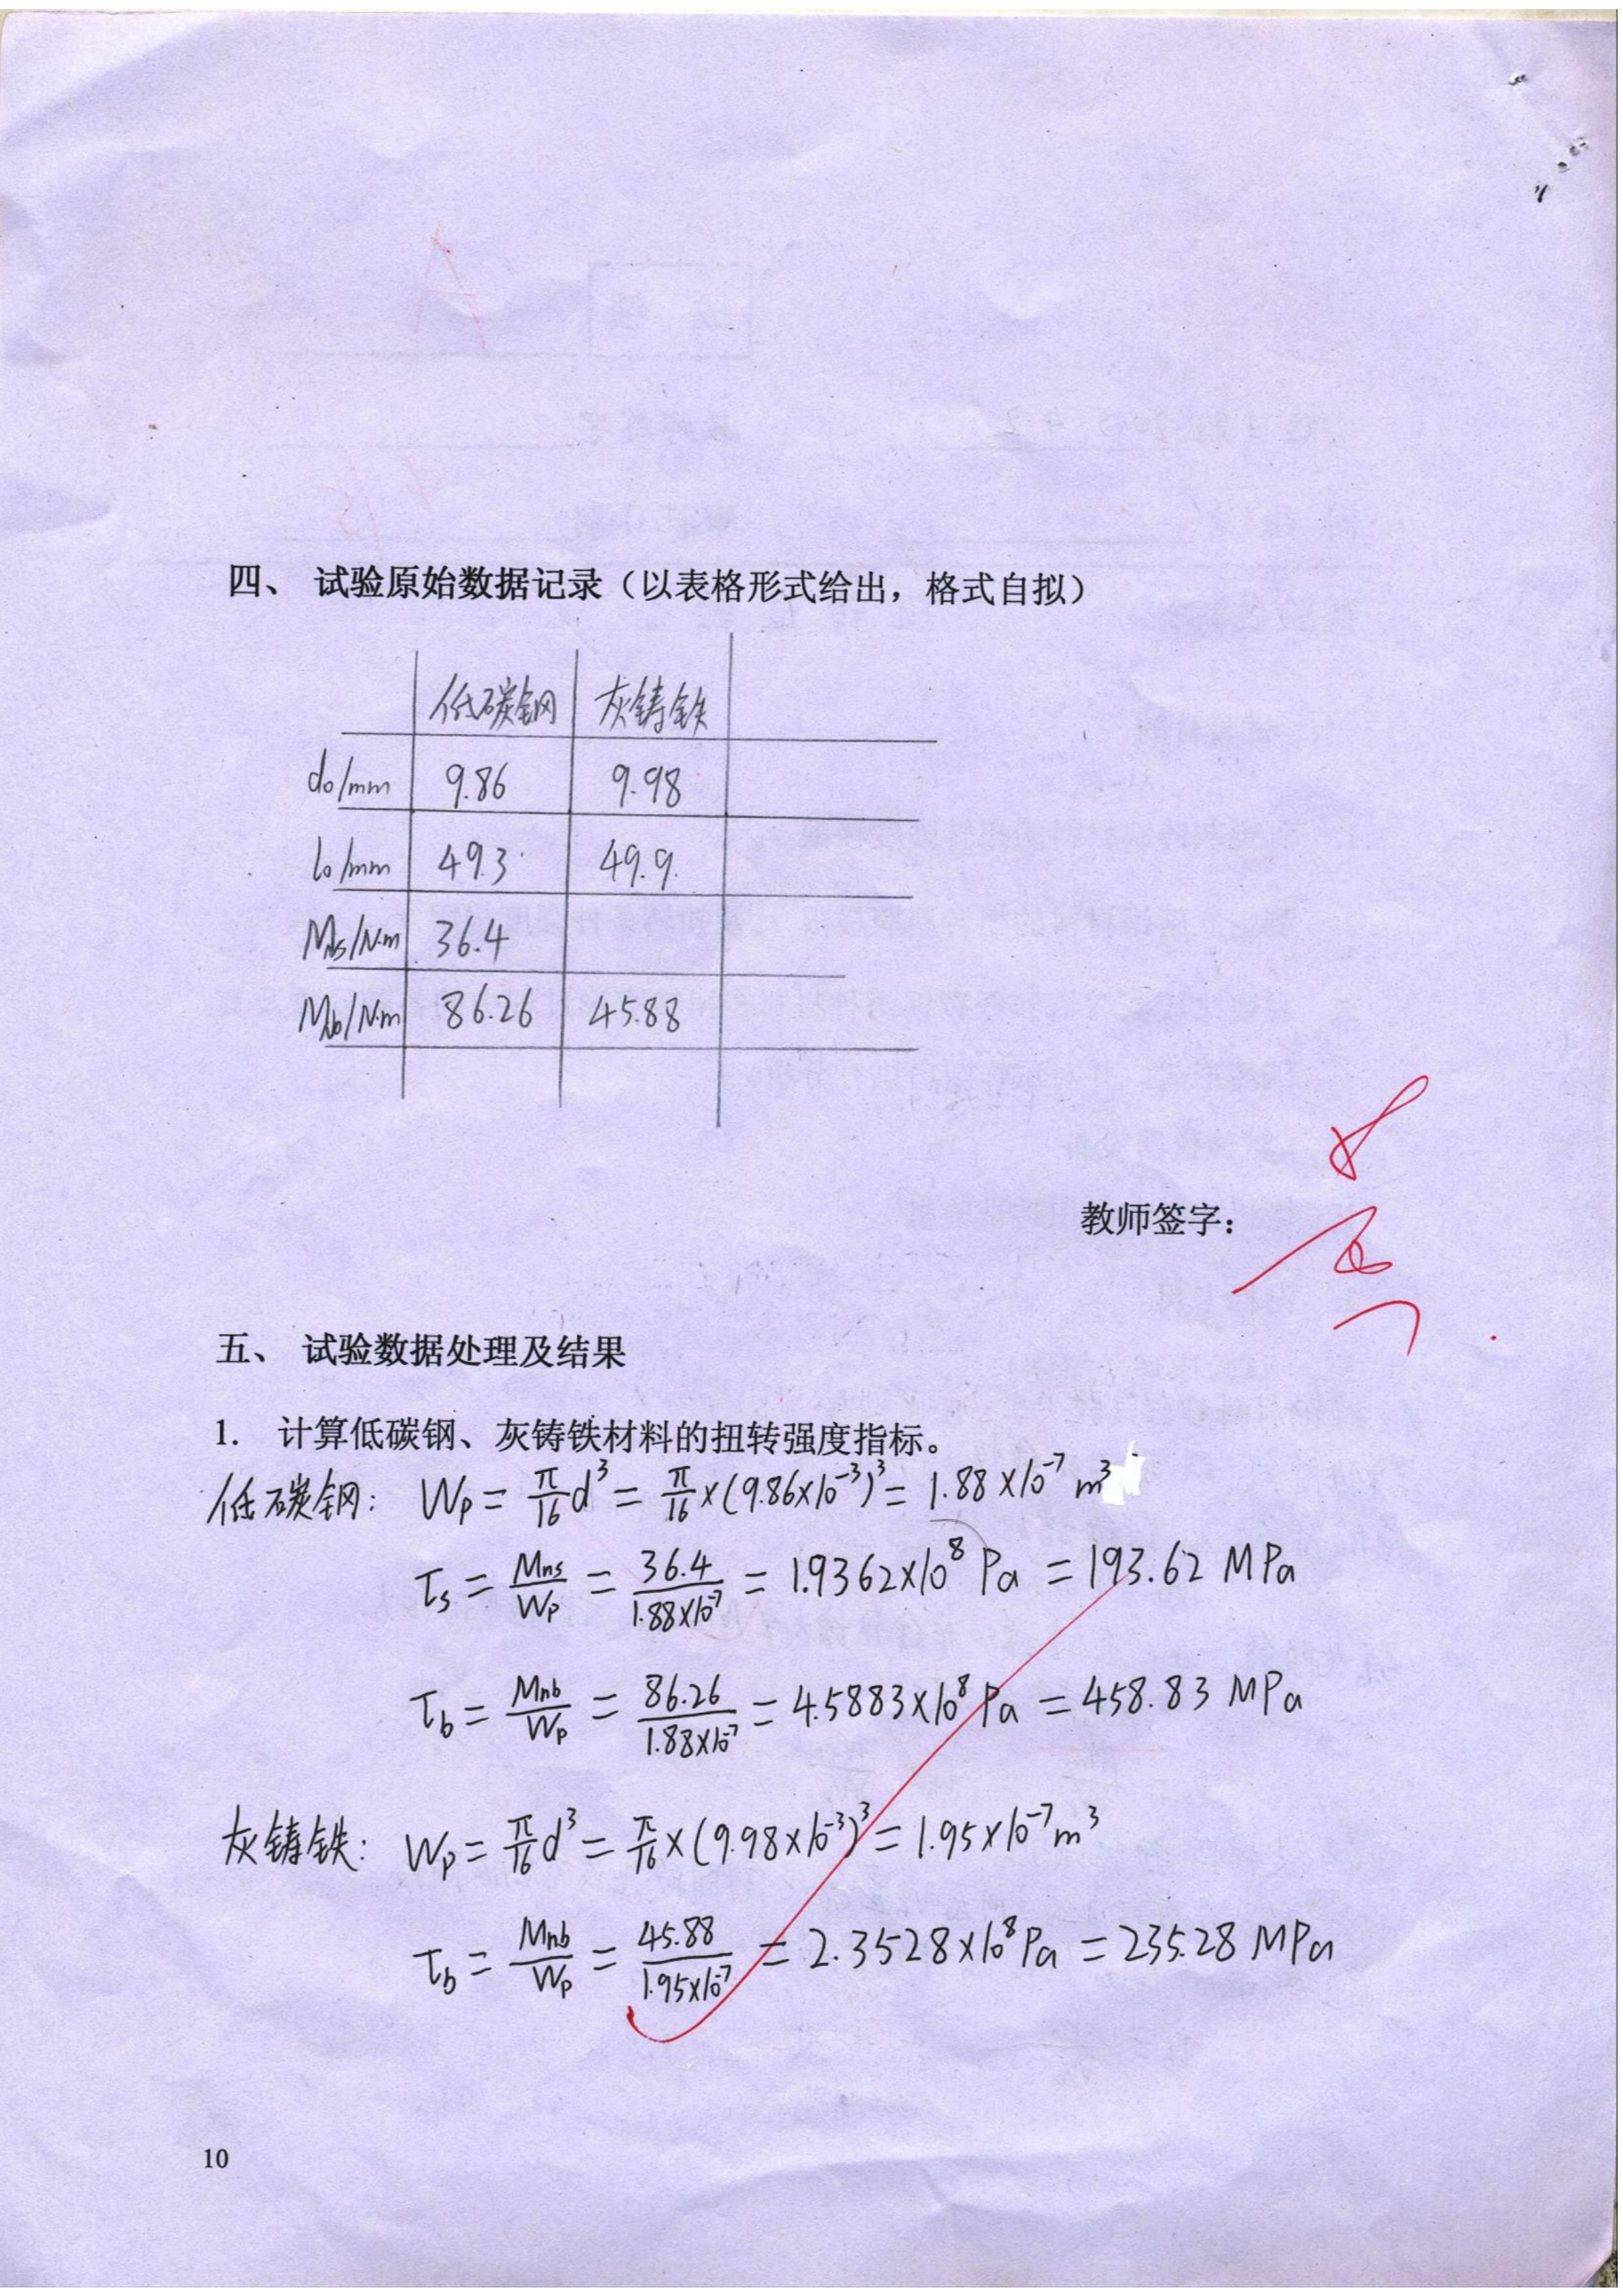 四、 试验原始数据记录（以表格形式给出，格式自拟）
低碳钢 灰铸铁
d₀/mm 9.86 9.98
l₀/mm 49.3 49.9
Mns/N·m 36.4
Mnb/N·m 86.26 45.88
教师签字：
五、 试验数据处理及结果
1. 计算低碳钢、灰铸铁材料的扭转强度指标。
低碳钢: Wp = π/16 d³ = π/16 ×(9.86×10⁻³)³ = 1.88×10⁻⁷ m³
τs = Mns/Wp = 36.4/1.88×10⁻⁷ = 1.9362×10⁸ Pa = 193.62 MPa
τb = Mnb/Wp = 86.26/1.88×10⁻⁷ = 4.5883×10⁸ Pa = 458.83 MPa
灰铸铁: Wp = π/16 d³ = π/16 ×(9.98×10⁻³)³ = 1.95×10⁻⁷ m³
τb = Mnb/Wp = 45.88/1.95×10⁻⁷ = 2.3528×10⁸ Pa = 235.28 MPa
10